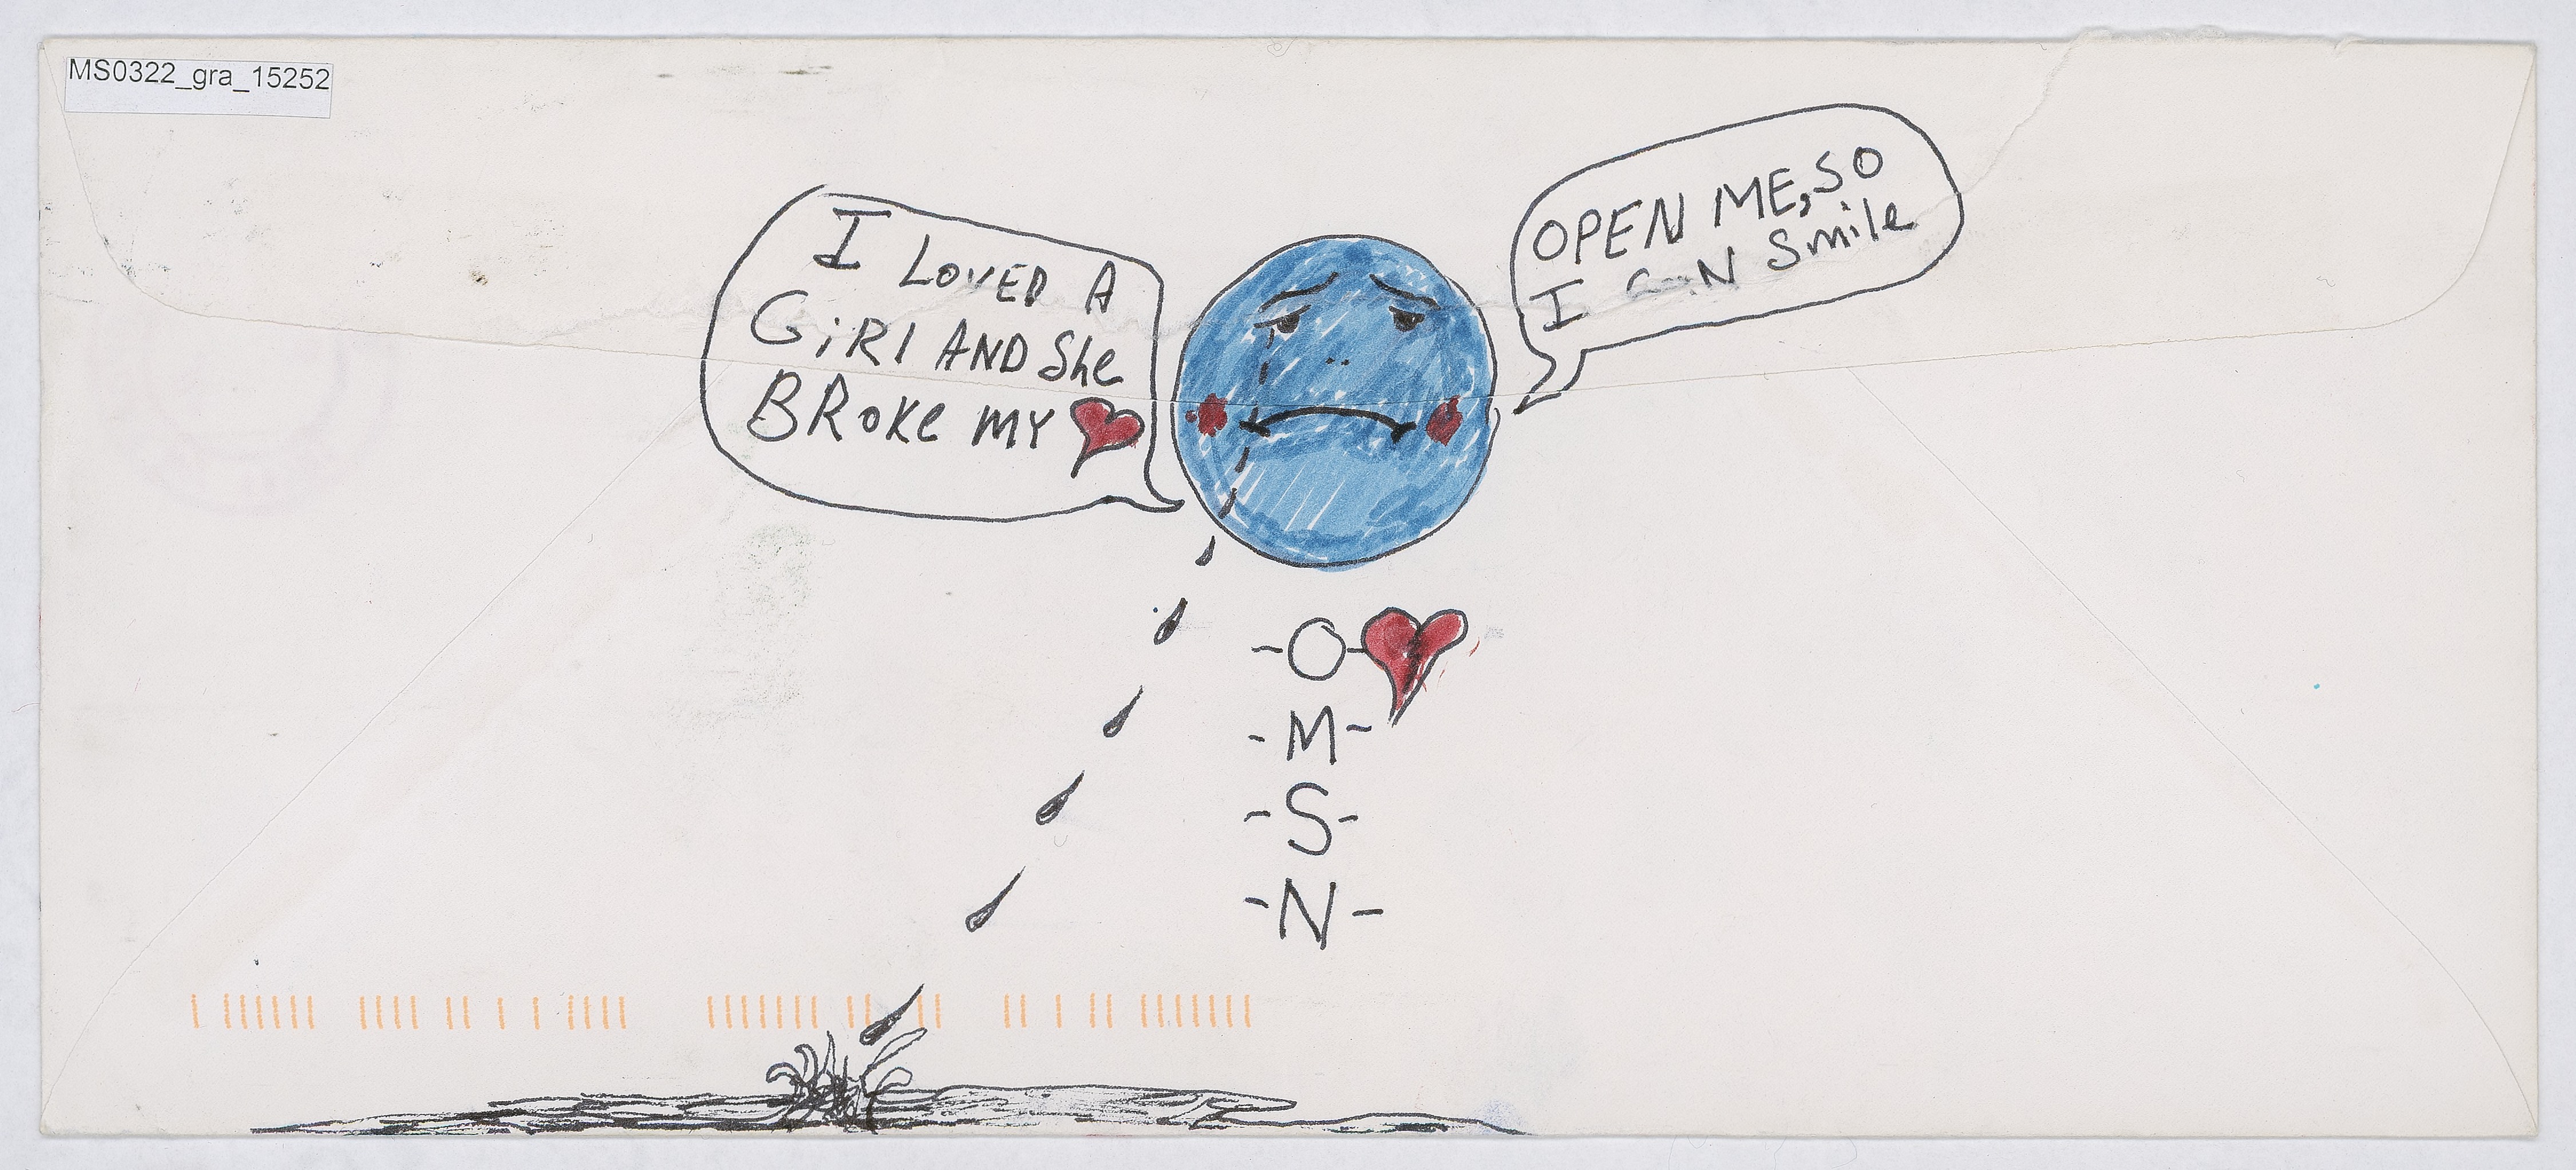 MS0322_gra_15252
I LOVED A
GiRl AND She
BROKe MY
OPEN ME, SO
I CAN Smile
-O-
-M-
-S-
-N-